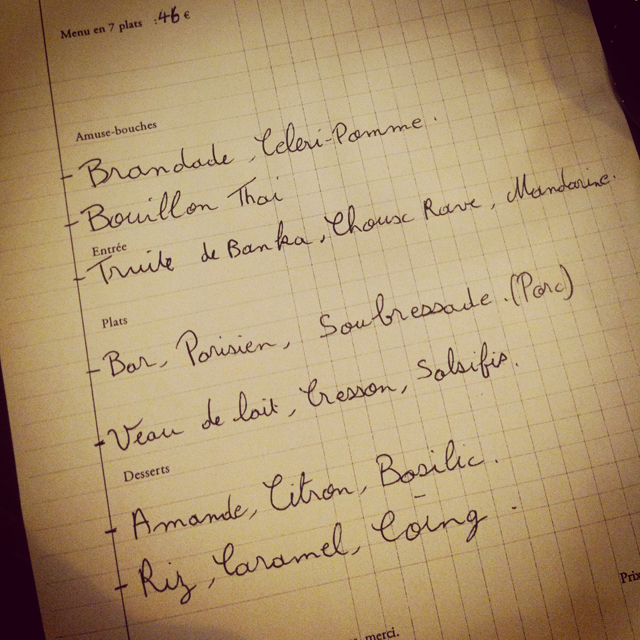 Menu en 7 plats : 46 €
Amuse-bouches
- Brandade, Céleri-Pomme.
- Bouillon Thai
Entrée
- Truite de Banka, Choux Rave, Mandarine.
Plats
- Bar, Parisien, Soubressade. (Porc)
- Veau de lait, Cresson, Salsifis.
Desserts
- Amande, Citron, Basilic.
- Riz, Caramel, Coing.
Prix
merci.